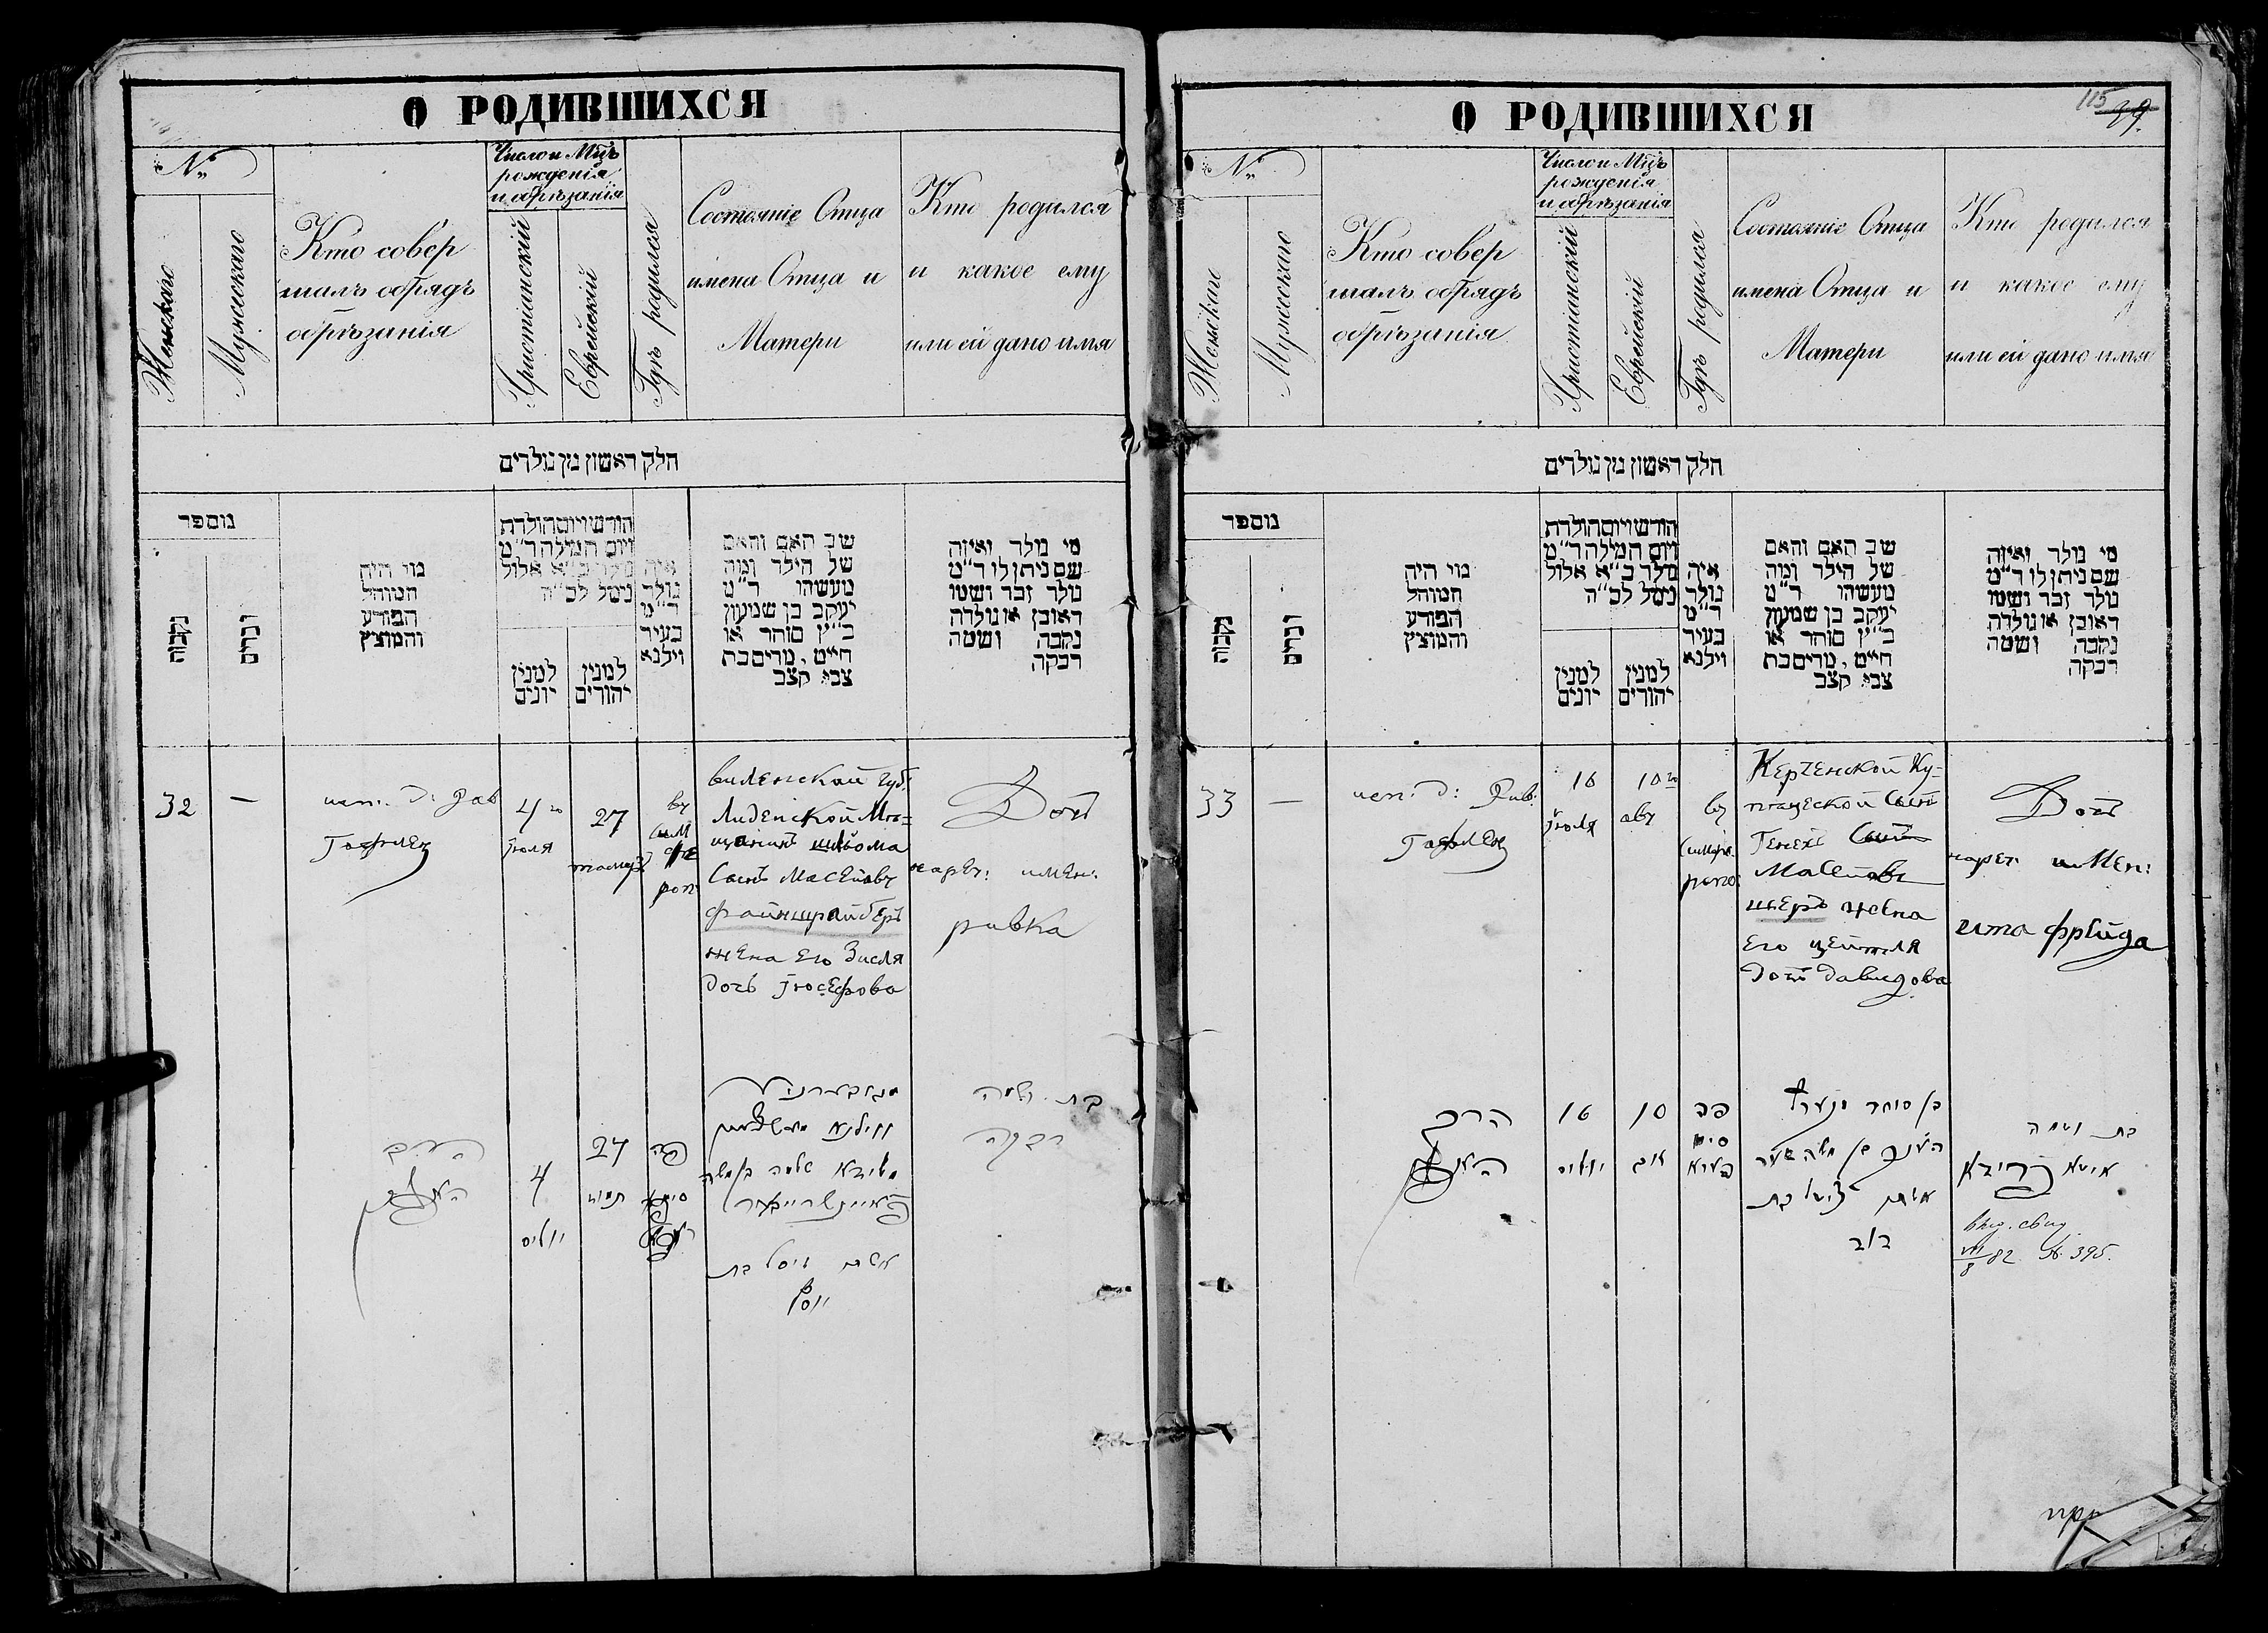 О РОДИВШИХСЯ
№
Женскаго
Мужскаго
Кто совер
шалъ обрядъ
обрѣзанія
Число и Мцъ
рожденія
и обрѣзанія
Христіанскій
Еврейскій
Гдѣ родился
Состояніе Отца
имена Отца и
Матери
Кто родился
и какое ему
или ей дано имя
חלק ראשון מן נולדים
מוספר
נקבות
זכרים
מי היה
המוהל
הפורע
והמוצץ
חודש ויום הולדת
ויום המילה ד״מ
נולד כ״א אלול
נימל לכ״ה
למנין
יונים
למנין
יהודים
איה
נולד
ד״מ
בעיר
וילנא
שב האם והאם
של הילד ומה
מעשהו ד״מ
יעקב בן שמעון
כ״ץ סוחר או
חייט, מרים בת
צבי קצב
מי נולד ואיזה
שם ניתן לו ד״מ
נולד זכר ושמו
ראובן או נולדה
נקבה ושמה
רבקה
32
—
исп. д: Рав
4го
Іюля
27
въ
Виленской губ.
Лиденской Мѣ=
щанинъ шлёома
Сынъ Масеновъ
файншрайберъ
жена его Зисля
дочь Іюсефова
Дочь
нареч: имен:
ривка
4
יוליס
27
תמוז
פה
ווילנא
אשתו זיסל בת
יוסף
בת ושמה
רבקה
О РОДИВШИХСЯ
115
39.
№
Женскаго
Мужскаго
Кто совер
шалъ обрядъ
обрѣзанія
Число и Мцъ
рожденія
и обрѣзанія
Христіанскій
Еврейскій
Гдѣ родился
Состояніе Отца
имена Отца и
Матери
Кто родился
и какое ему
или ей дано имя
חלק ראשון מן נולדים
מוספר
נקבות
זכרים
מי היה
המוהל
הפורע
והמוצץ
חודש ויום הולדת
ויום המילה ד״מ
נולד כ״א אלול
נימל לכ״ה
למנין
יונים
למנין
יהודים
איה
נולד
ד״מ
בעיר
וילנא
שב האם והאם
של הילד ומה
מעשהו ד״מ
יעקב בן שמעון
כ״ץ סוחר או
חייט, מרים בת
צבי קצב
מי נולד ואיזה
שם ניתן לו ד״מ
נולד זכר ושמו
ראובן או נולדה
נקבה ושמה
רבקה
33
—
исп: д: Рав:
16
Іюля
10го
авъ
въ
Керченской Ку=
печеской Сынъ
Генехъ Сынъ
Масеновъ
шеръ жена
Его Цейтля
дочь Давидова
Дочь
нареч: имен:
ита фрейда
הרב
16
יוליס
10
אב
פה
אשתו צייטל בת
דוד
בת ושמה
איטא פריידא
выд. свид.
VII/8 82 № 395.